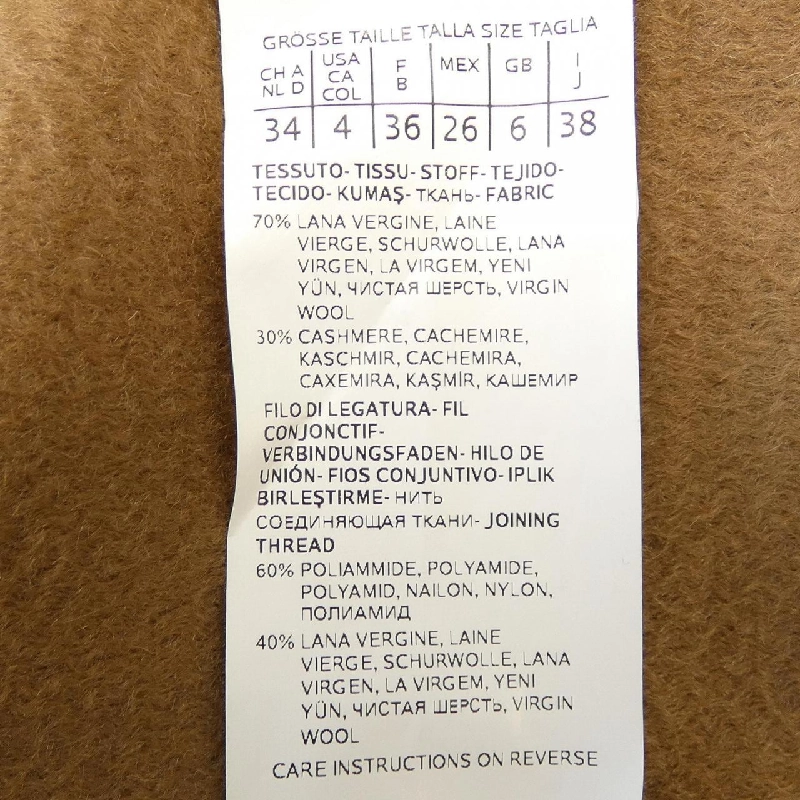 GRÖSSE TAILLE TALLA SIZE TAGLIA
CH A NL D | USA CA COL | F B | MEX | GB | I J
34 | 4 | 36 | 26 | 6 | 38
TESSUTO- TISSU- STOFF- TEJIDO-
TECIDO- KUMAŞ- ТКАНЬ- FABRIC
70% LANA VERGINE, LAINE
VIERGE, SCHURWOLLE, LANA
VIRGEN, LA VIRGEM, YENI
YÜN, ЧИСТАЯ ШЕРСТЬ, VIRGIN
WOOL
30% CASHMERE, CACHEMIRE,
KASCHMIR, CACHEMIRA,
CAXEMIRA, KAŞMİR, КАШЕМИР
FILO DI LEGATURA- FIL
CONJONCTIF-
VERBINDUNGSFADEN- HILO DE
UNIÓN- FIOS CONJUNTIVO- IPLIK
BIRLEŞTIRME- НИТЬ
СОЕДИНЯЮЩАЯ ТКАНИ- JOINING
THREAD
60% POLIAMMIDE, POLYAMIDE,
POLYAMID, NAILON, NYLON,
ПОЛИАМИД
40% LANA VERGINE, LAINE
VIERGE, SCHURWOLLE, LANA
VIRGEN, LA VIRGEM, YENI
YÜN, ЧИСТАЯ ШЕРСТЬ, VIRGIN
WOOL
CARE INSTRUCTIONS ON REVERSE